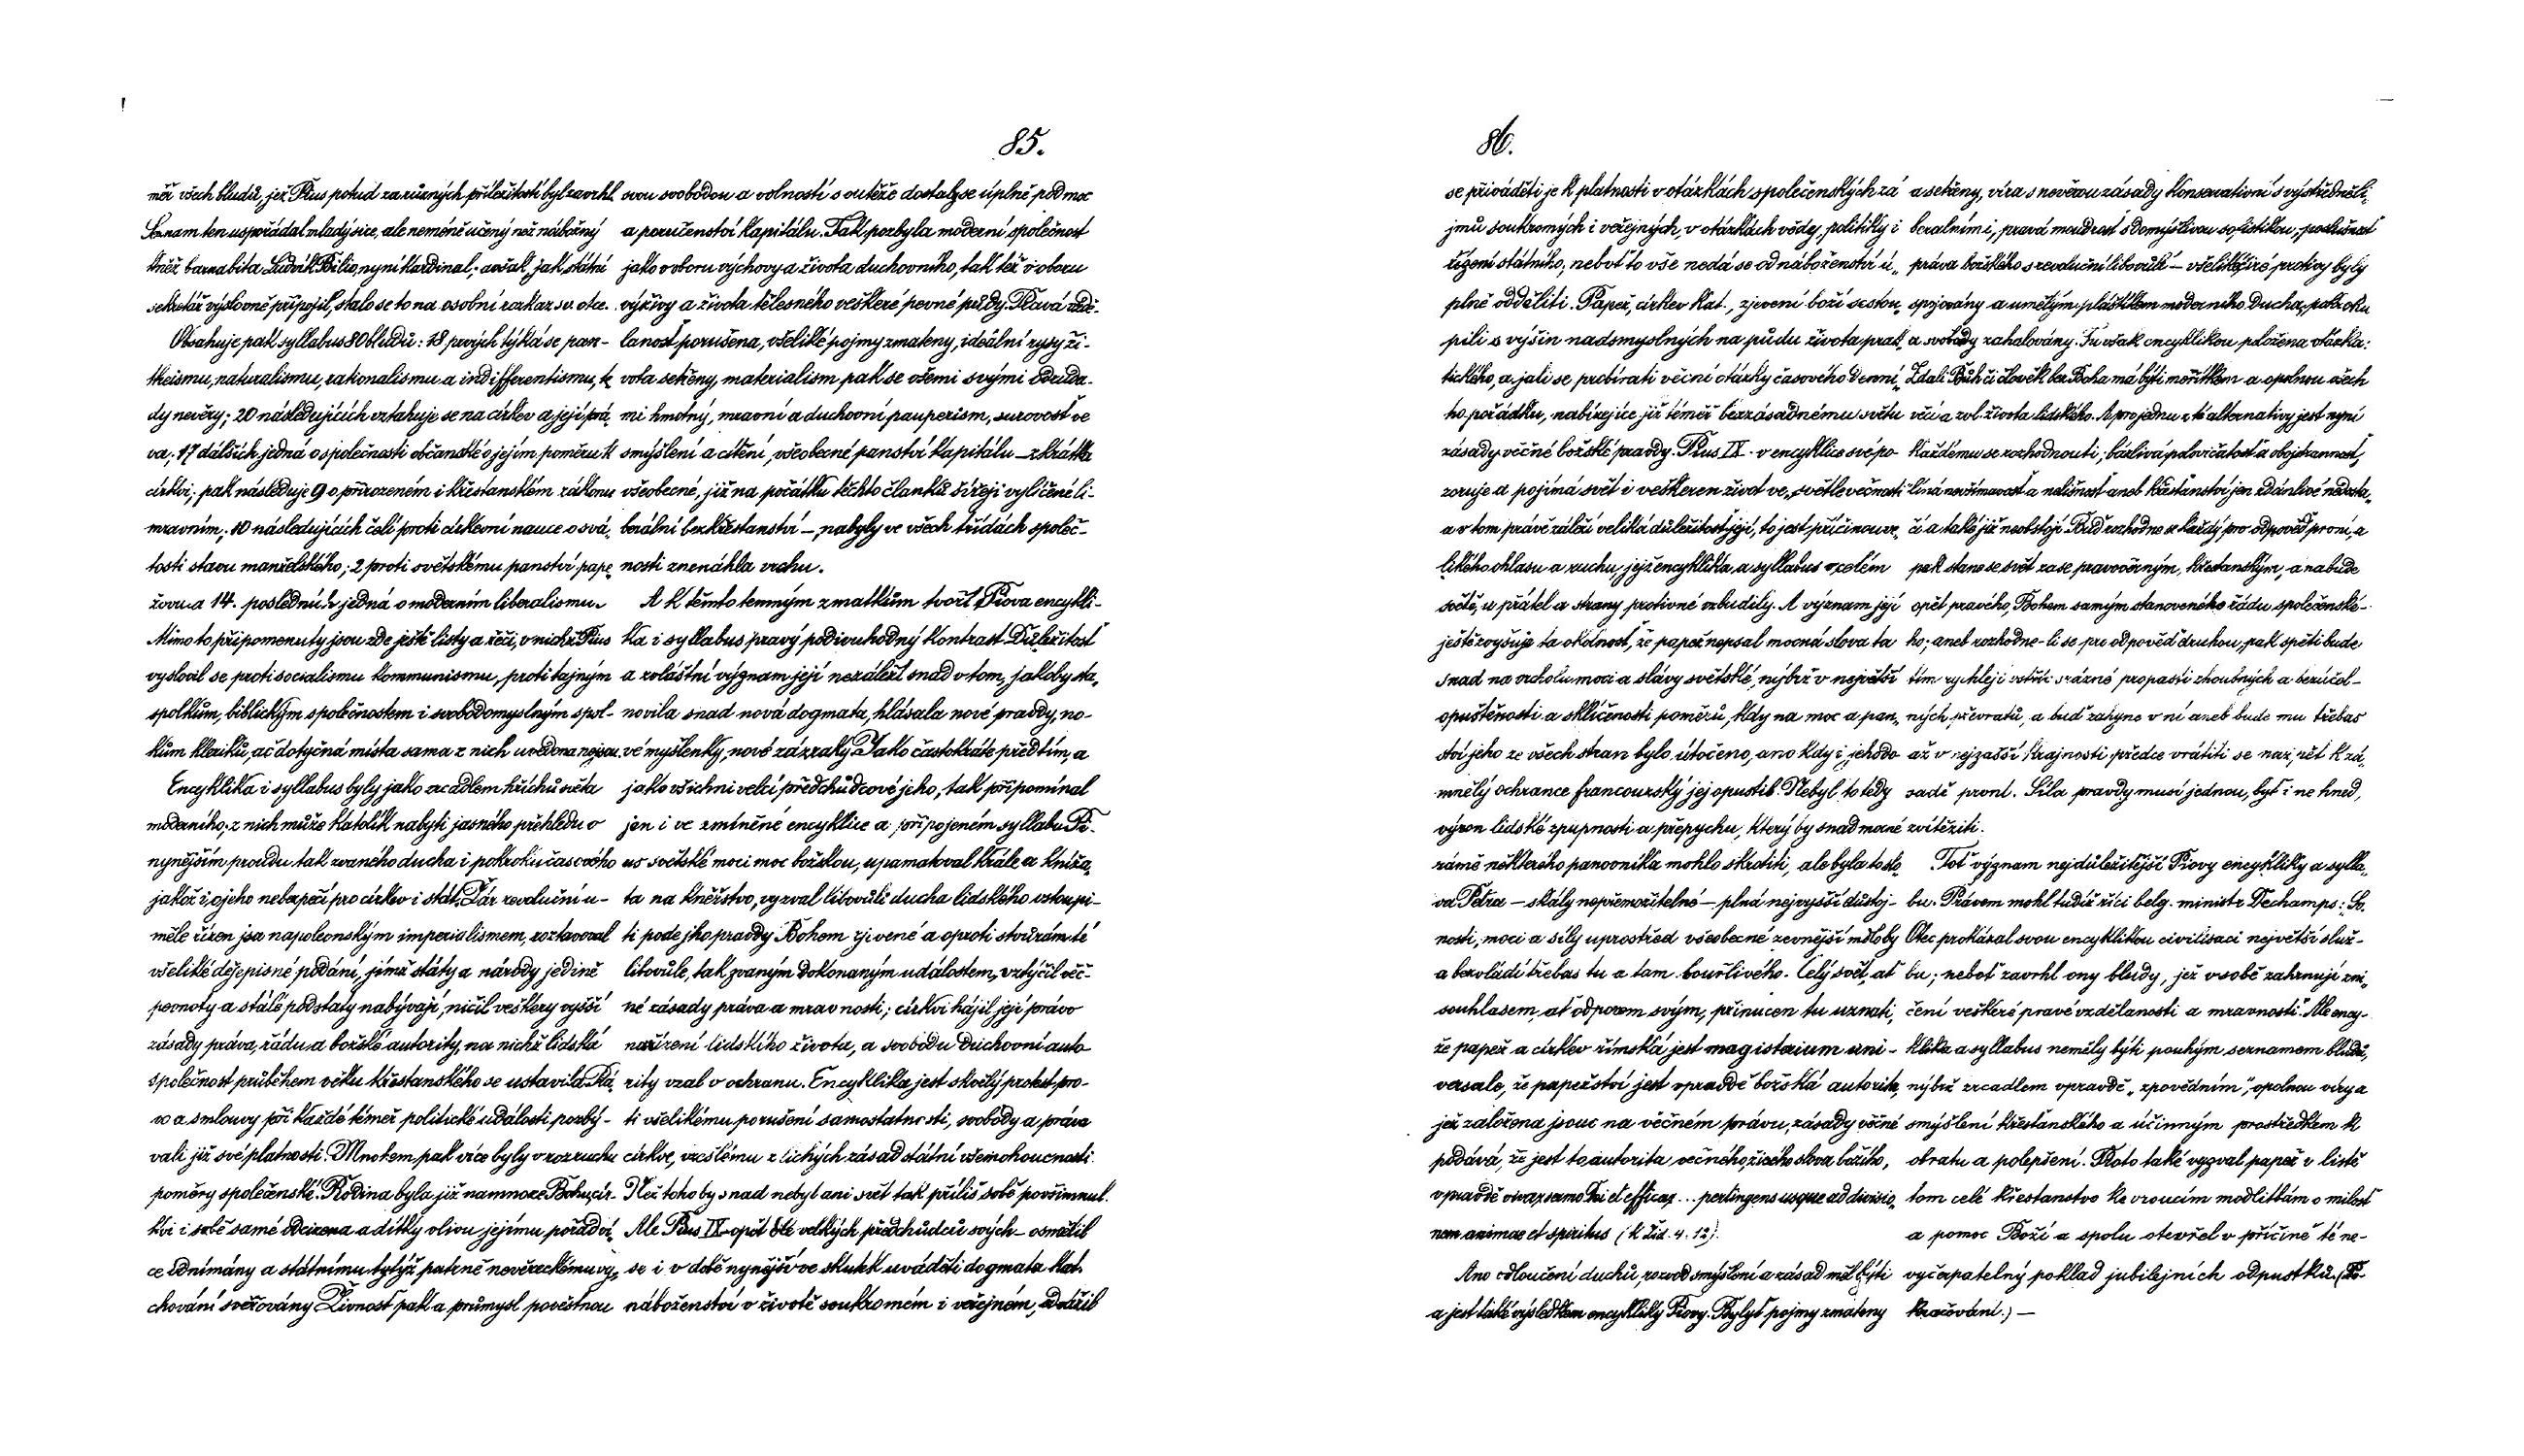 85.
měř všech bludů, jež Pius potud za různých příležitostí byl zavrhl.
Seznam ten uspořádal mladý sice, ale neméně učený než nábožný
kněz barnabita Ludvík Bilio, nyní kardinal; avšak, jak státní
sekretář výslovně připojil, stalo se to na osobní rozkaz sv. otce.
Obsahuje pak syllabus 80 bludů: 18 prvých týká se pan-
theismu, naturalismu, rationalismu a indifferentismu, t.
dy nevěry; 20 následujících vztahuje se na církev a její prá„
va; 17 dálších jedná o společnosti občanské o jejím poměru k
církvi; pak následuje 9 o přirozeném i křesťanském zákonu
mravním; 10 následujících čelí proti církevní nauce o svá„
tosti stavu manželského; 2 proti světskému panství pape„
žovu a 14. poslední jedná o moderním liberalismu.
Mimo to připomenuty jsou zde ještě listy a řeči, v nichž Pius
vyslovil se proti socialismu kommunismu, proti tajným
spolkům, biblickým společnostem i svobodomyslným spol-
kům kleriků, ač dotyčná místa sama z nich uvedena nejsou.
Encyklika i syllabus byly jako zrcadlem hříchů světa
moderního; z nich může katolík nabyti jasného přehledu o
nynějším proudu tak zvaného ducha i pokroku časového
jakož i o jeho nebezpečí pro církev i stát. Žár revoluční u-
měle řízen jsa napoleonským imperialismem, roztavoval
všeliké dějepisné podání, jímž státy a národy jedině
pevnoty a stálé podstaty nabývají; ničil veškery vyšší
zásady práva, řádu a božské autority, na nichž lidská
společnost průběhem věku křesťanského se ustavila. Prá„
vo a smlouvy při každé téměř politické události pozbý-
vali již své platnosti. Mnohem pak více byly v rozruchu
poměry společenské. Rodina byla již namnoze Bohu, cír-
kvi i sobě samé odcizena a dítky vlivu jejímu pořád ví„
ce odnímány a státnímu tytýž patrně nevěreckému vy„
chování svěřovány. Živnosť pak a průmysl pověstnou
svou svobodou a volností soutěže dostaly se úplně pod moc
a poručenství kapitálu. Tak pozbyla moderní společnost
jako v oboru výchovy a života duchovního, tak též v oboru
výživy a života tělesného veškeré pevné půdy. Pravá vzdě-
lanosť porušena, všeliké pojmy zmateny, ideální rysy ži-
vota setřeny, materialism pak se všemi svými odruda-
mi hmotný, mravní a duchovní pauperism, surovosť ve
smýšlení a cítění, všeobecné panství kapitálu – zkrátka
všeobecné, již na počátku těchto článků šířeji vylíčené li-
berální bezkřesťanství –, nabyly ve všech třídách společ-
nosti znenáhla vrchu.
A k těmto temným zmatkům tvořil Piova encykli-
ka i syllabus pravý podivuhodný kontrast. Důležitosť
a zvláštní význam její nezáležel snad v tom, jakoby sta„
novila snad nová dogmata, hlásala nové pravdy, no-
vé myšlenky, nové zázraky. Jako častokráte před tím, a
jako všichni velcí předchůdcové jeho, tak připomínal
jen i ve zmíněné encyklice a připojeném syllabu Pi-
us světské moci moc božskou, upamatoval krále a kníža„
ta na kněžstvo, vyzval libovůli ducha lidského vstoupi-
ti pode jho pravdy Bohem zjevené a oproti stvůrám té
libovůle, tak zvaným dokonaným událostem, vztýčil věč-
né zásady práva a mravnosti; církvi hájil její právo
na řízení lidského života, a svobodu duchovní auto
rity vzal v ochranu. Encyklika jest skvělý protest pro-
ti všelikému porušení samostatnosti, svobody a práva
církve, vzešlému z lichých zásad státní všemohoucnosti.
Než toho by snad nebyl ani svět tak příliš sobě povšimnul.
Ale Pius IX. opět dle velkých předchůdců svých – osmělil
se i v době nynější ve skutek uváděti dogmata kat.
náboženství v životě soukromém i veřejném, odvážil
86.
se přiváděti je k platnosti v otázkách společenských zá
jmů soukromých i veřejných, v otázkách vědy, politiky i
řízení státního, neboť to vše nedá se od náboženství ú„
plně odděliti. Papež, církev kat., zjevení boží sestou„
pili s výšin nadsmyslných na půdu života prak„
tického, a jali se probírati věčné otázky časového denní„
ho pořádku, nabízejíce již téměř bezzásadnému světu
zásady věčné božské pravdy. Pius IX. v encyklice své po-
zoruje a pojímá svět i veškeren život ve „světle věčnosti“
a v tom právě záleží veliká důležitosť její, to jest příčinou ve„
likého ohlasu a ruchu, jejž encyklika a syllabus v celém
světě, u přátel a strany protivné vzbudily. A význam její
ještě zvyšuje ta okolnosť, že papež nepsal mocná slova ta
snad na vrcholu moci a slávy světské, nýbrž v největší
opuštěnosti a sklíčenosti poměrů, kdy na moc a pan„
ství jeho ze všech stran bylo útočeno, ano kdy i jeho do
mnělý ochrance francouzský jej opustil. Nebyl to tedy
výron lidské zpupnosti a přepychu, který by snad mocné
rámě některého panovníka mohlo skrotiti, ale byla to slo„
va Petra – skály nepřemožitelné – plná nejvyšší důstoj-
nosti, moci a síly uprostřed všeobecné zevnější mdloby
a bezvládí třebas tu a tam bouřlivého. Celý svět, ať
souhlasem, ať odporem svým, přinucen tu uznati,
že papež a církev římská jest magisterium uni-
versale, že papežství jest vpravdě božská autorita,
jež založena jsouc na věčném právu, zásady věčné
podává, že jest to autorita věčného, živého slova božího,
vpravdě onvaz sermo Dei et efficax ... pertingens usque ad divisio„
nem animae et spiritus (k Žid. 4. 12).
Ano odloučení duchů, rozvod smýšlení a zásad měl býti
a jest také výsledkem encykliky Piovy. Bylyť pojmy zmateny
a setřeny, víra s nevěrou zásady konservativní s výstředně li„
berálními, pravá moudrost s domýšlivou sofistikou, poslušnosť
práva božského s revoluční libovůlí – všeliké jiré protivy byly
spojovány a umělým pláštíkem moderního ducha, pokroku
a svobody zahalovány. Tu však encyklikou položena otázka:
Zdali Bůh či člověk bez Boha má býti měřítkem a opolnou všech
věcí a zvl. života lidského. A pro jednu z té alternativy jest nyní
každému se rozhodnouti; bázlivá polovičatosť a obojetrannosť,
líná nevšímavosť a netečnosť aneb křesťanství jen zdánlivé nedosta„
čí a také již neobstojí. Buď rozhodne se každý pro odpověď první, a
pak stane se svět zase pravověrným, křesťanským, a nabude
opět pravého, Bohem samým stanoveného řádu společenské-
ho; aneb rozhodne-li se pro odpověď druhou, pak spěti bude
tím rychleji vstříc srázné propasti zhoubných a bezúčel-
ných převratů, a buď zahyne v ní aneb bude mu třebas
až v nejzašší krajnosti předce vrátiti se nazpět k zá„
sadě první. Síla pravdy musí jednou, byť i ne hned,
zvítěziti.
Toť význam nejdůležitější Piovy encykliky a sylla„
bu. Právem mohl tudíž říci belg. ministr Dechamps: Sv.
Otec prokázal svou encyklikou civilisaci největší služ-
bu; neboť zavrhl ony bludy, jež v sobě zahrnují zni„
čení veškeré pravé vzdělanosti a mravnosti. Ale ency-
klika a syllabus neměly býti pouhým seznamem bludů,
nýbrž zrcadlem vpravdě „zpovědním“, opolnou víry a
smýšlení křesťanského a účinným prostředkem k
obratu a polepšení. Proto také vyzval papež v listě
tom celé křesťanstvo ke vroucím modlitbám o milosť
a pomoc Boží a spolu otevřel v příčině té ne-
vyčerpatelný poklad jubilejních odpustků. (Po-
kračování.) –